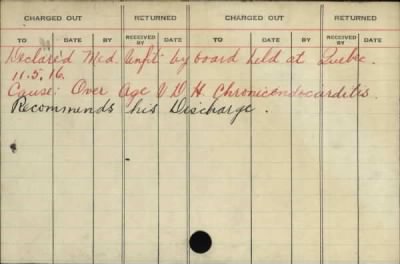 CHARGED OUT RETURNED CHARGED OUT RETURNED
TO DATE BY RECEIVED BY DATE TO DATE BY RECEIVED BY DATE
Declared Med Unfit by board held at Quebec.
11.5.16.
Cause: Over Age V.D.H. Chronicendocarditis.
Recommends his Discharge.